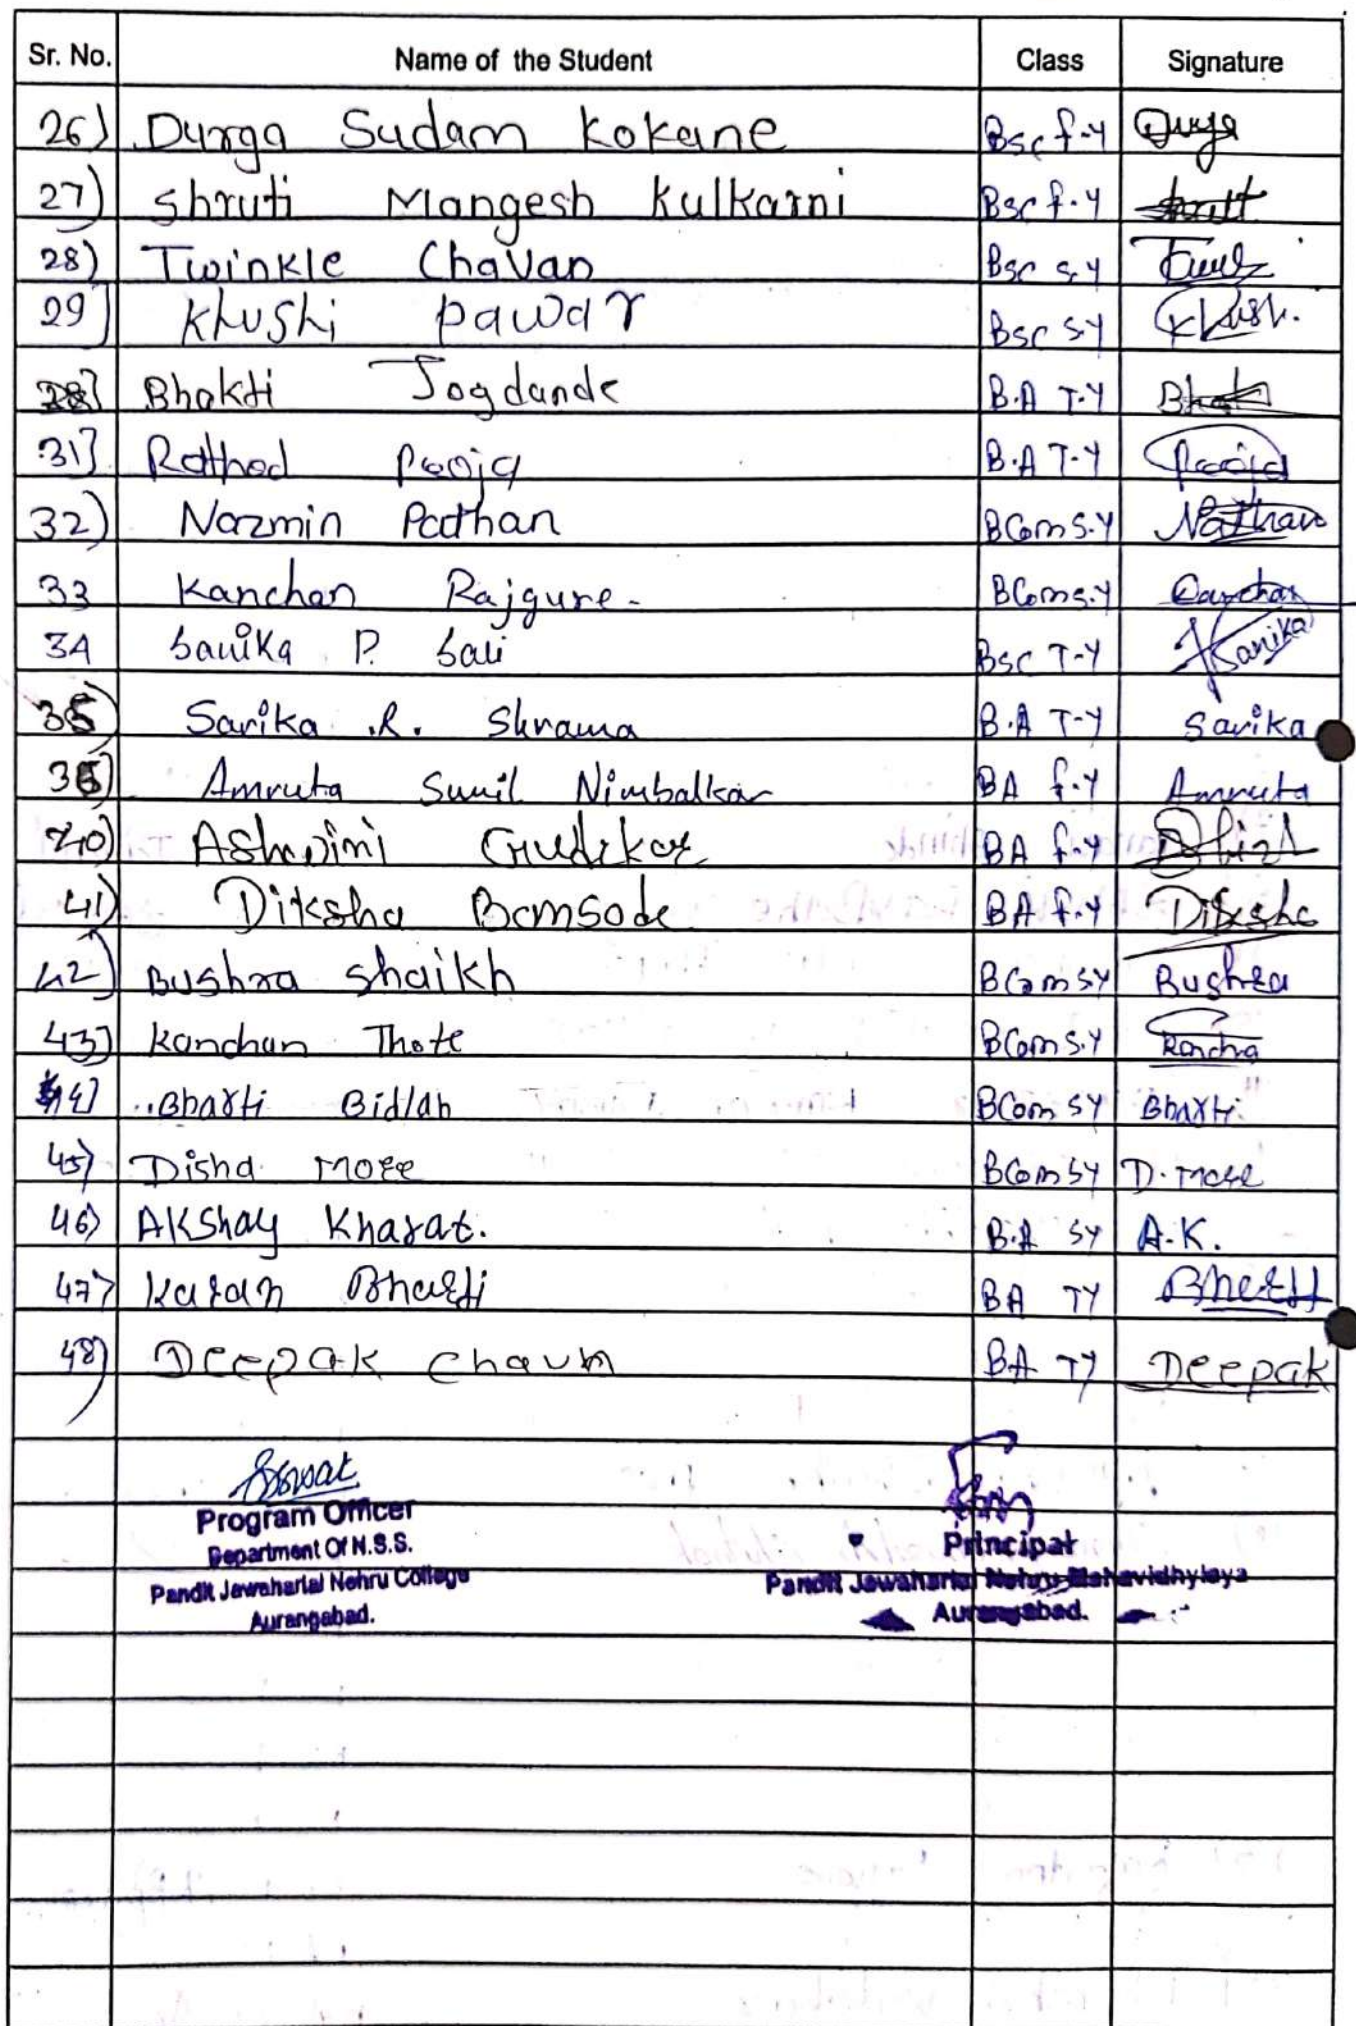 Sr. No. Name of the Student Class Signature
26) Durga Sudam Kokane Bsc f-y Durga
27) Shruti Mangesh Kulkarni Bsc f.y
28) Twinkle Chavan Bsc s.y
29] Khushi pawar Bsc s.y Khush.
Bhakti Jogdande B.A T-Y
31] Rathod Pooja B.A T-Y Pooja
32) Nazmin Pathan BCom S.Y
33 Kanchan Rajgure- BCom s.y
34 P. Bsc T-Y Sarika
35) Sarika .R. Shrama B.A T-Y Sarika
36) Amruta Sunil Nimbalkar BA f.y Amruta
40) Ashwini Gudekar BA f.y
41) Diksha Bamsode BA f.y Diksha
42) Bushra shaikh BCom SY Bushra
43) Kanchan Thote BCom S.Y Kancha
44] Bharti Bidlan BCom SY Bharti
45) Disha more BCom SY D. more
46) Akshay Kharat. B.A SY A.K.
47) Karan Bharti BA TY Bharti
48) Deepak chavan BA TY Deepak
Program Officer
Department Of N.S.S.
Pandit Jawaharlal Nehru College
Aurangabad.
Principal
Pandit Jawaharlal Nehru Mahavidhylaya
Aurangabad.